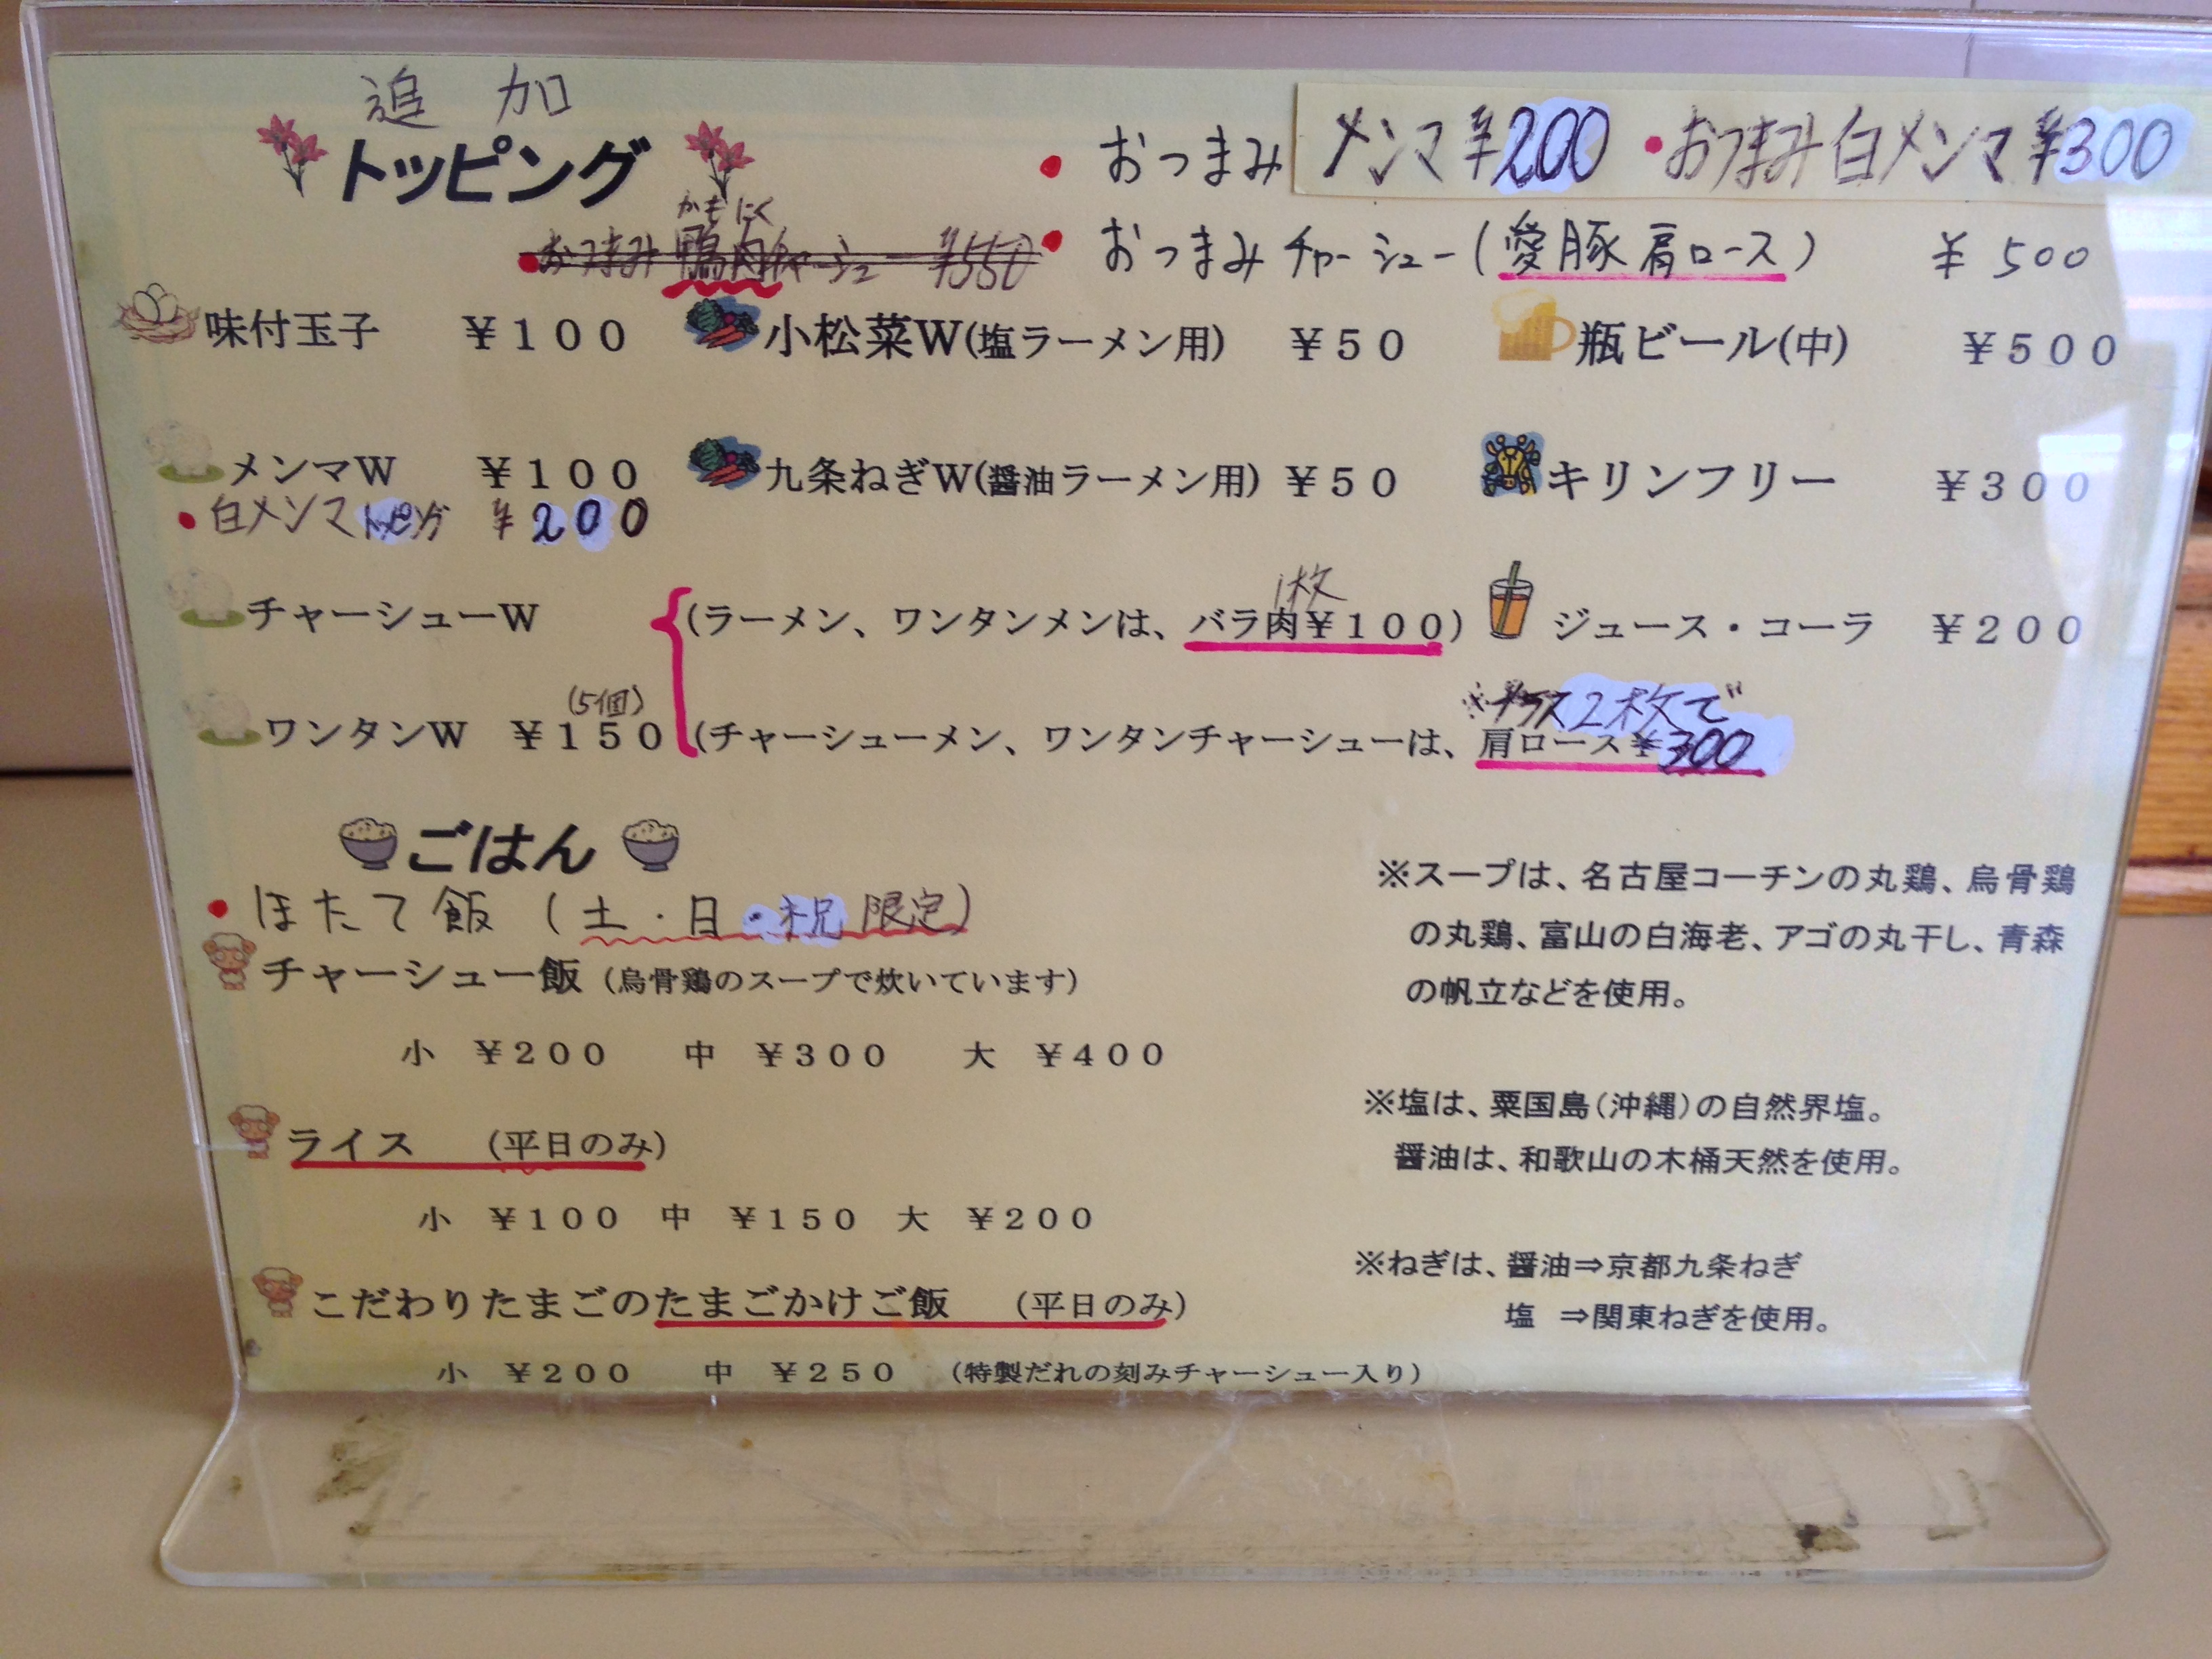 追加
トッピング
おつまみ メンマ ¥200 ・おつまみ白メンマ ¥300
かもにく
おつまみ 鴨肉チャーシュー ¥550
おつまみチャーシュー(愛豚肩ロース) ¥500
味付玉子 ¥100 小松菜W(塩ラーメン用) ¥50 瓶ビール(中) ¥500
メンマW ¥100 九条ねぎW(醤油ラーメン用) ¥50 キリンフリー ¥300
白メンマトッピング ¥200
1枚
チャーシューW (ラーメン、ワンタンメンは、バラ肉¥100) ジュース・コーラ ¥200
(5個) ※プラス2枚で
ワンタンW ¥150 (チャーシューメン、ワンタンチャーシューは、肩ロース¥300
ごはん
ほたて飯 (土・日・祝限定)
チャーシュー飯 (烏骨鶏のスープで炊いています)
小 ¥200 中 ¥300 大 ¥400
ライス (平日のみ)
小 ¥100 中 ¥150 大 ¥200
こだわりたまごのたまごかけご飯 (平日のみ)
小 ¥200 中 ¥250 (特製だれの刻みチャーシュー入り)
※スープは、名古屋コーチンの丸鶏、烏骨鶏
の丸鶏、富山の白海老、アゴの丸干し、青森
の帆立などを使用。
※塩は、粟国島(沖縄)の自然界塩。
醤油は、和歌山の木桶天然を使用。
※ねぎは、醤油⇒京都九条ねぎ
塩 ⇒関東ねぎを使用。